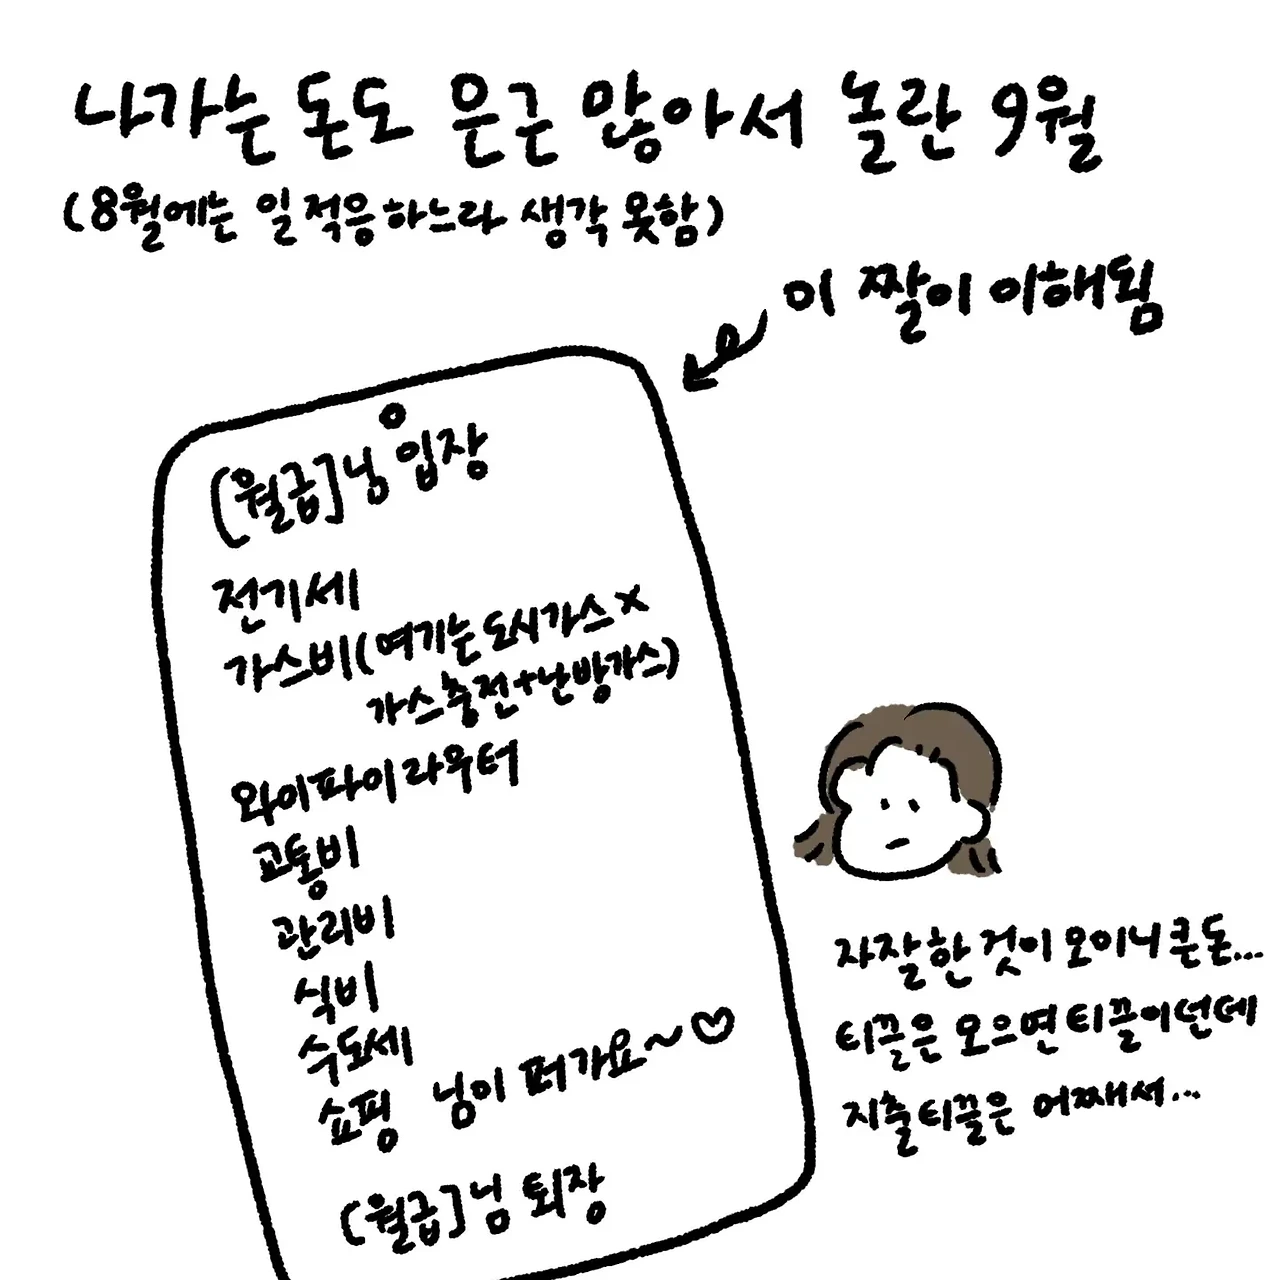 나가는 돈도 은근 많아서 놀란 9월
(8월에는 일 적응하느라 생각 못함)
이 짤이 이해됨
[월급]님 입장
전기세
가스비(여기는 도시가스 x
가스충전+난방가스)
와이파이 라우터
교통비
관리비
식비
수도세
쇼핑 님이 퍼가요~♡
[월급]님 퇴장
자잘한 것이 모이니 큰돈...
티끌은 모으면 티끌이던데
지출티끌은 어째서...